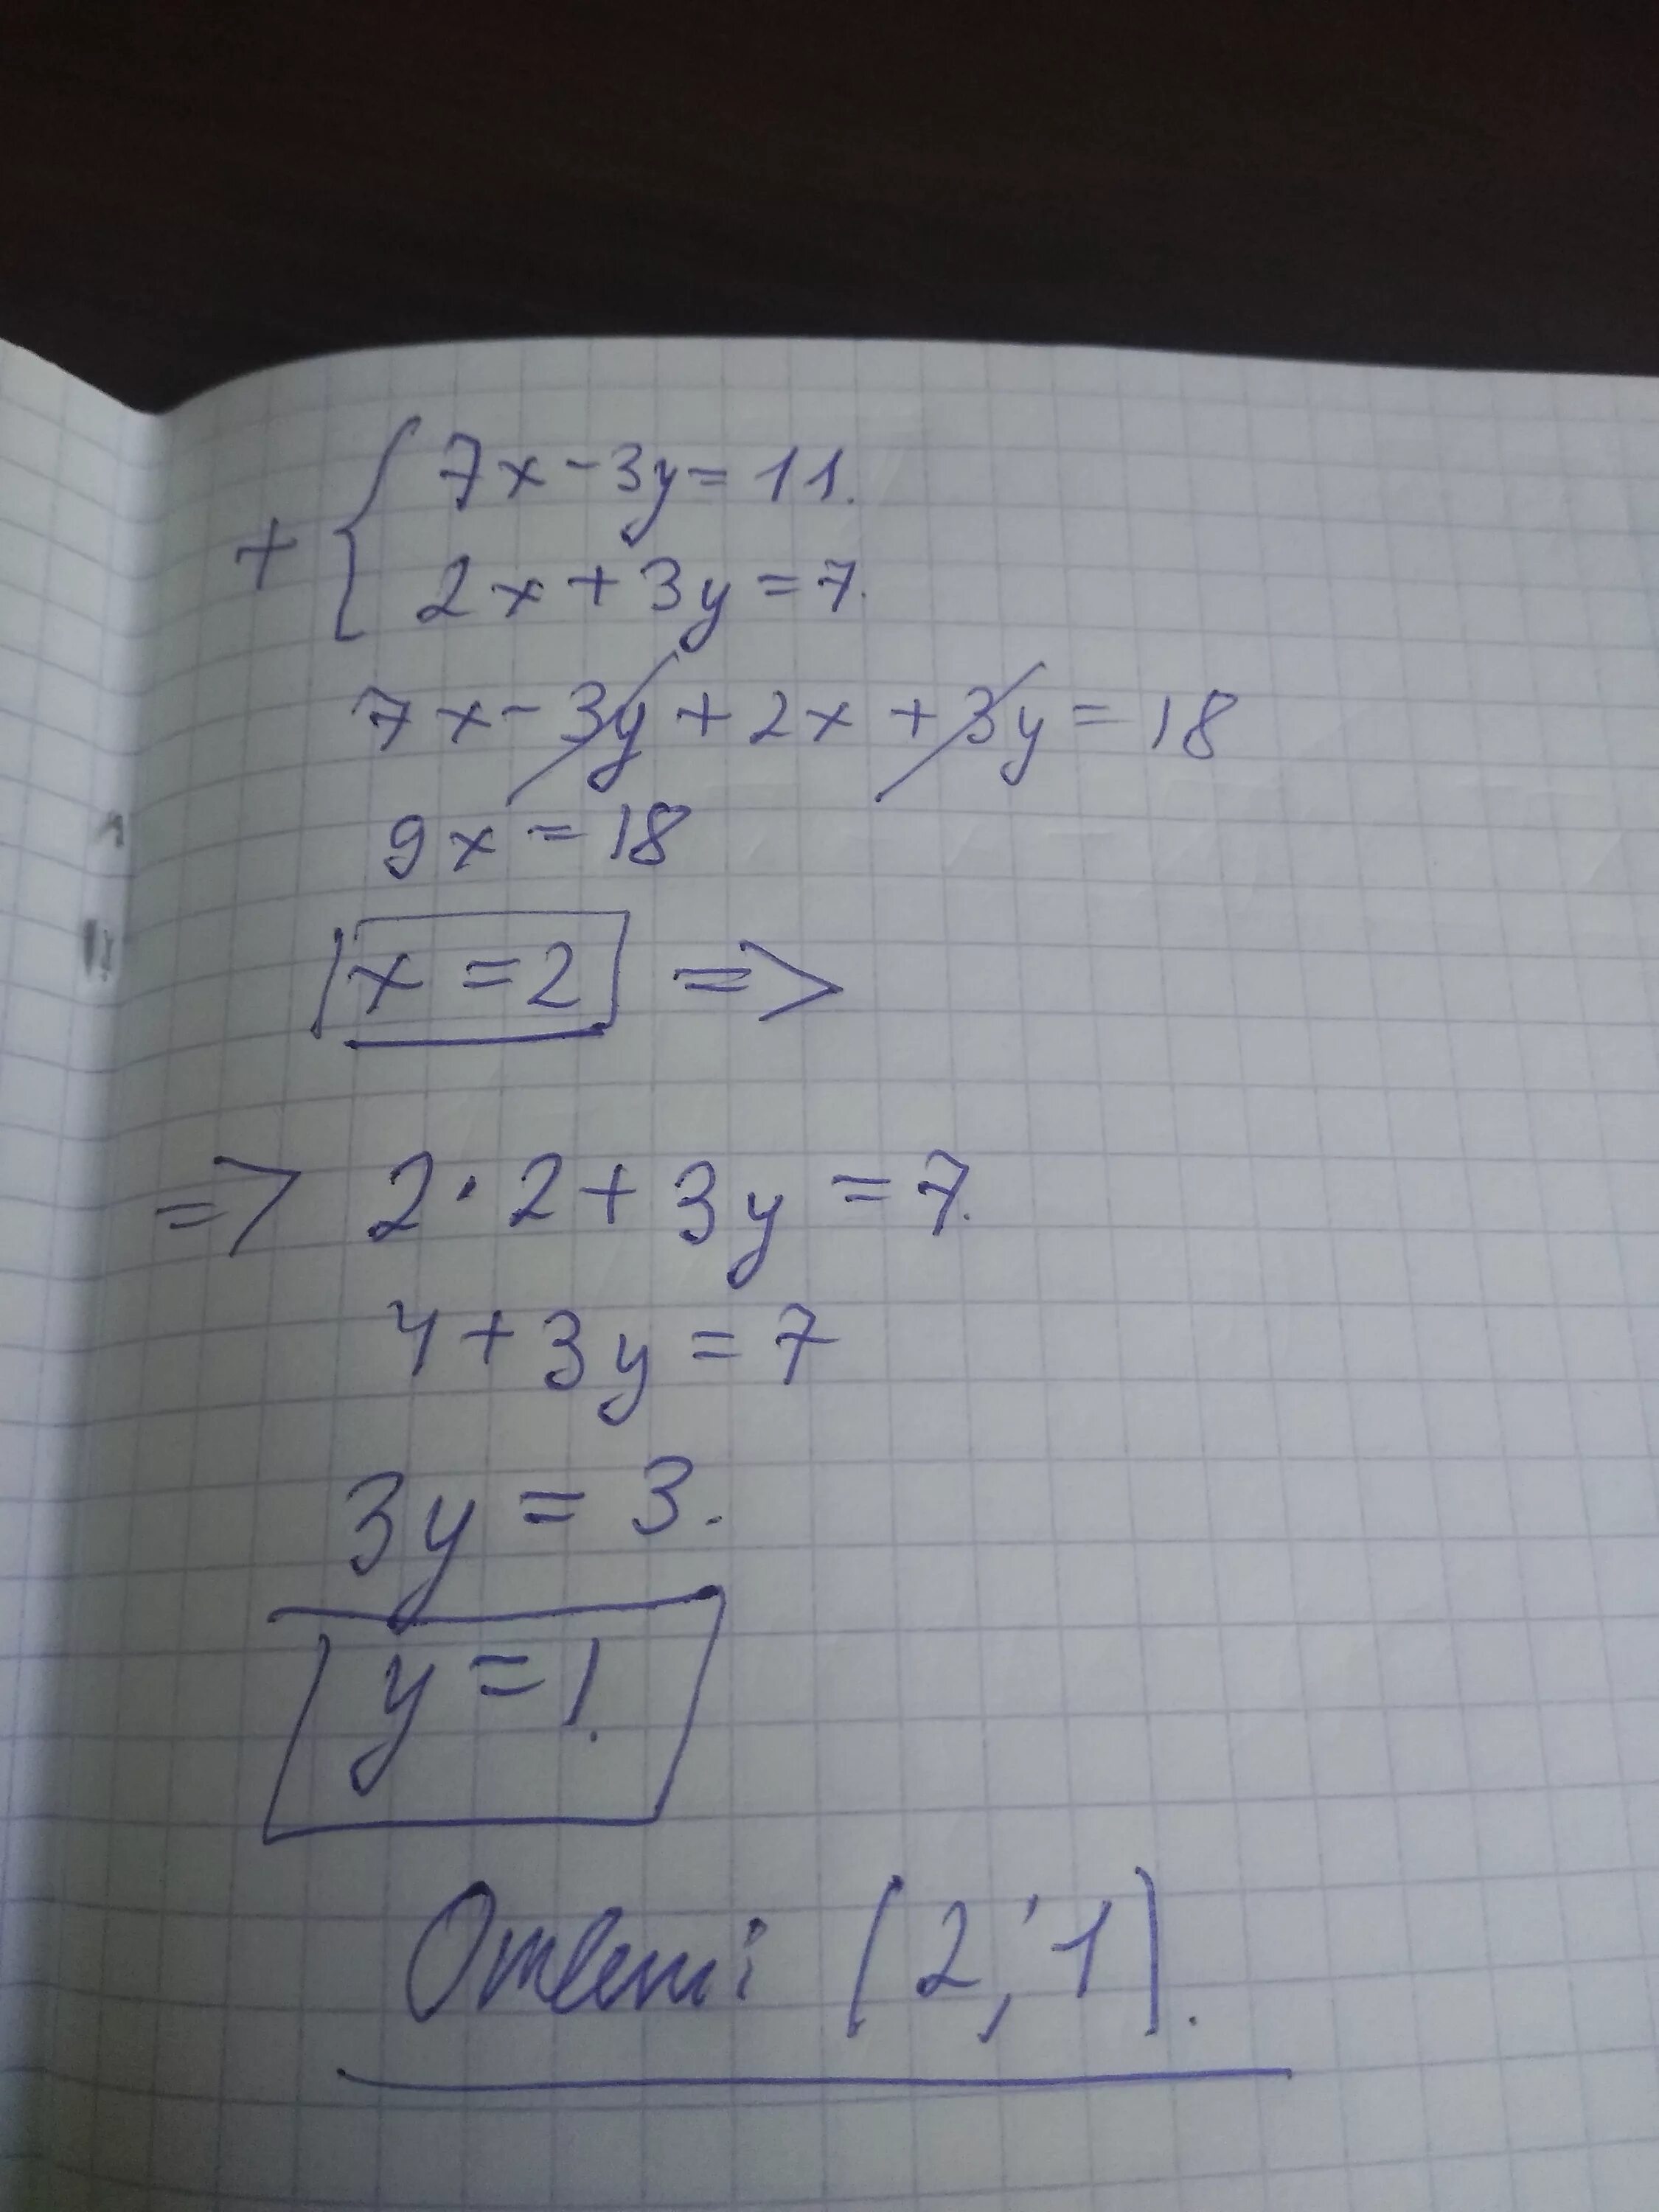 + { 7x - 3y = 11.
2x + 3y = 7.
7x - 3y + 2x + 3y = 18
9x = 18
x = 2 =>
=> 2 · 2 + 3y = 7.
4 + 3y = 7
3y = 3.
y = 1.
Ответ: (2; 1).